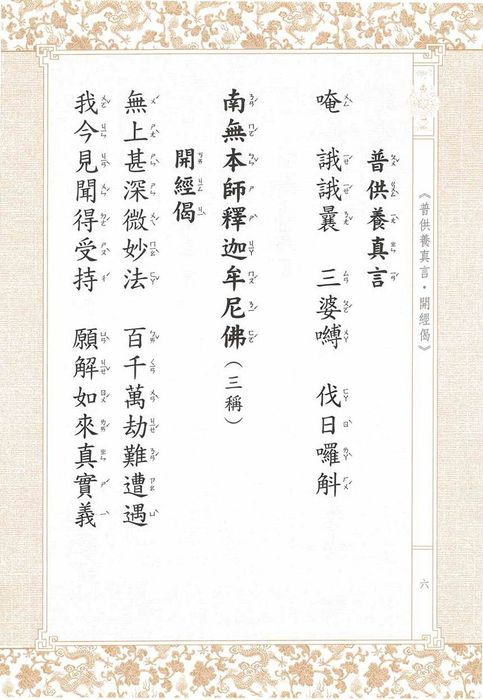 《普供養真言・開經偈》
六
普供養真言
唵　誐誐曩　三婆嚩　伐日囉斛
南無本師釋迦牟尼佛（三稱）
開經偈
無上甚深微妙法　百千萬劫難遭遇
我今見聞得受持　願解如來真實義